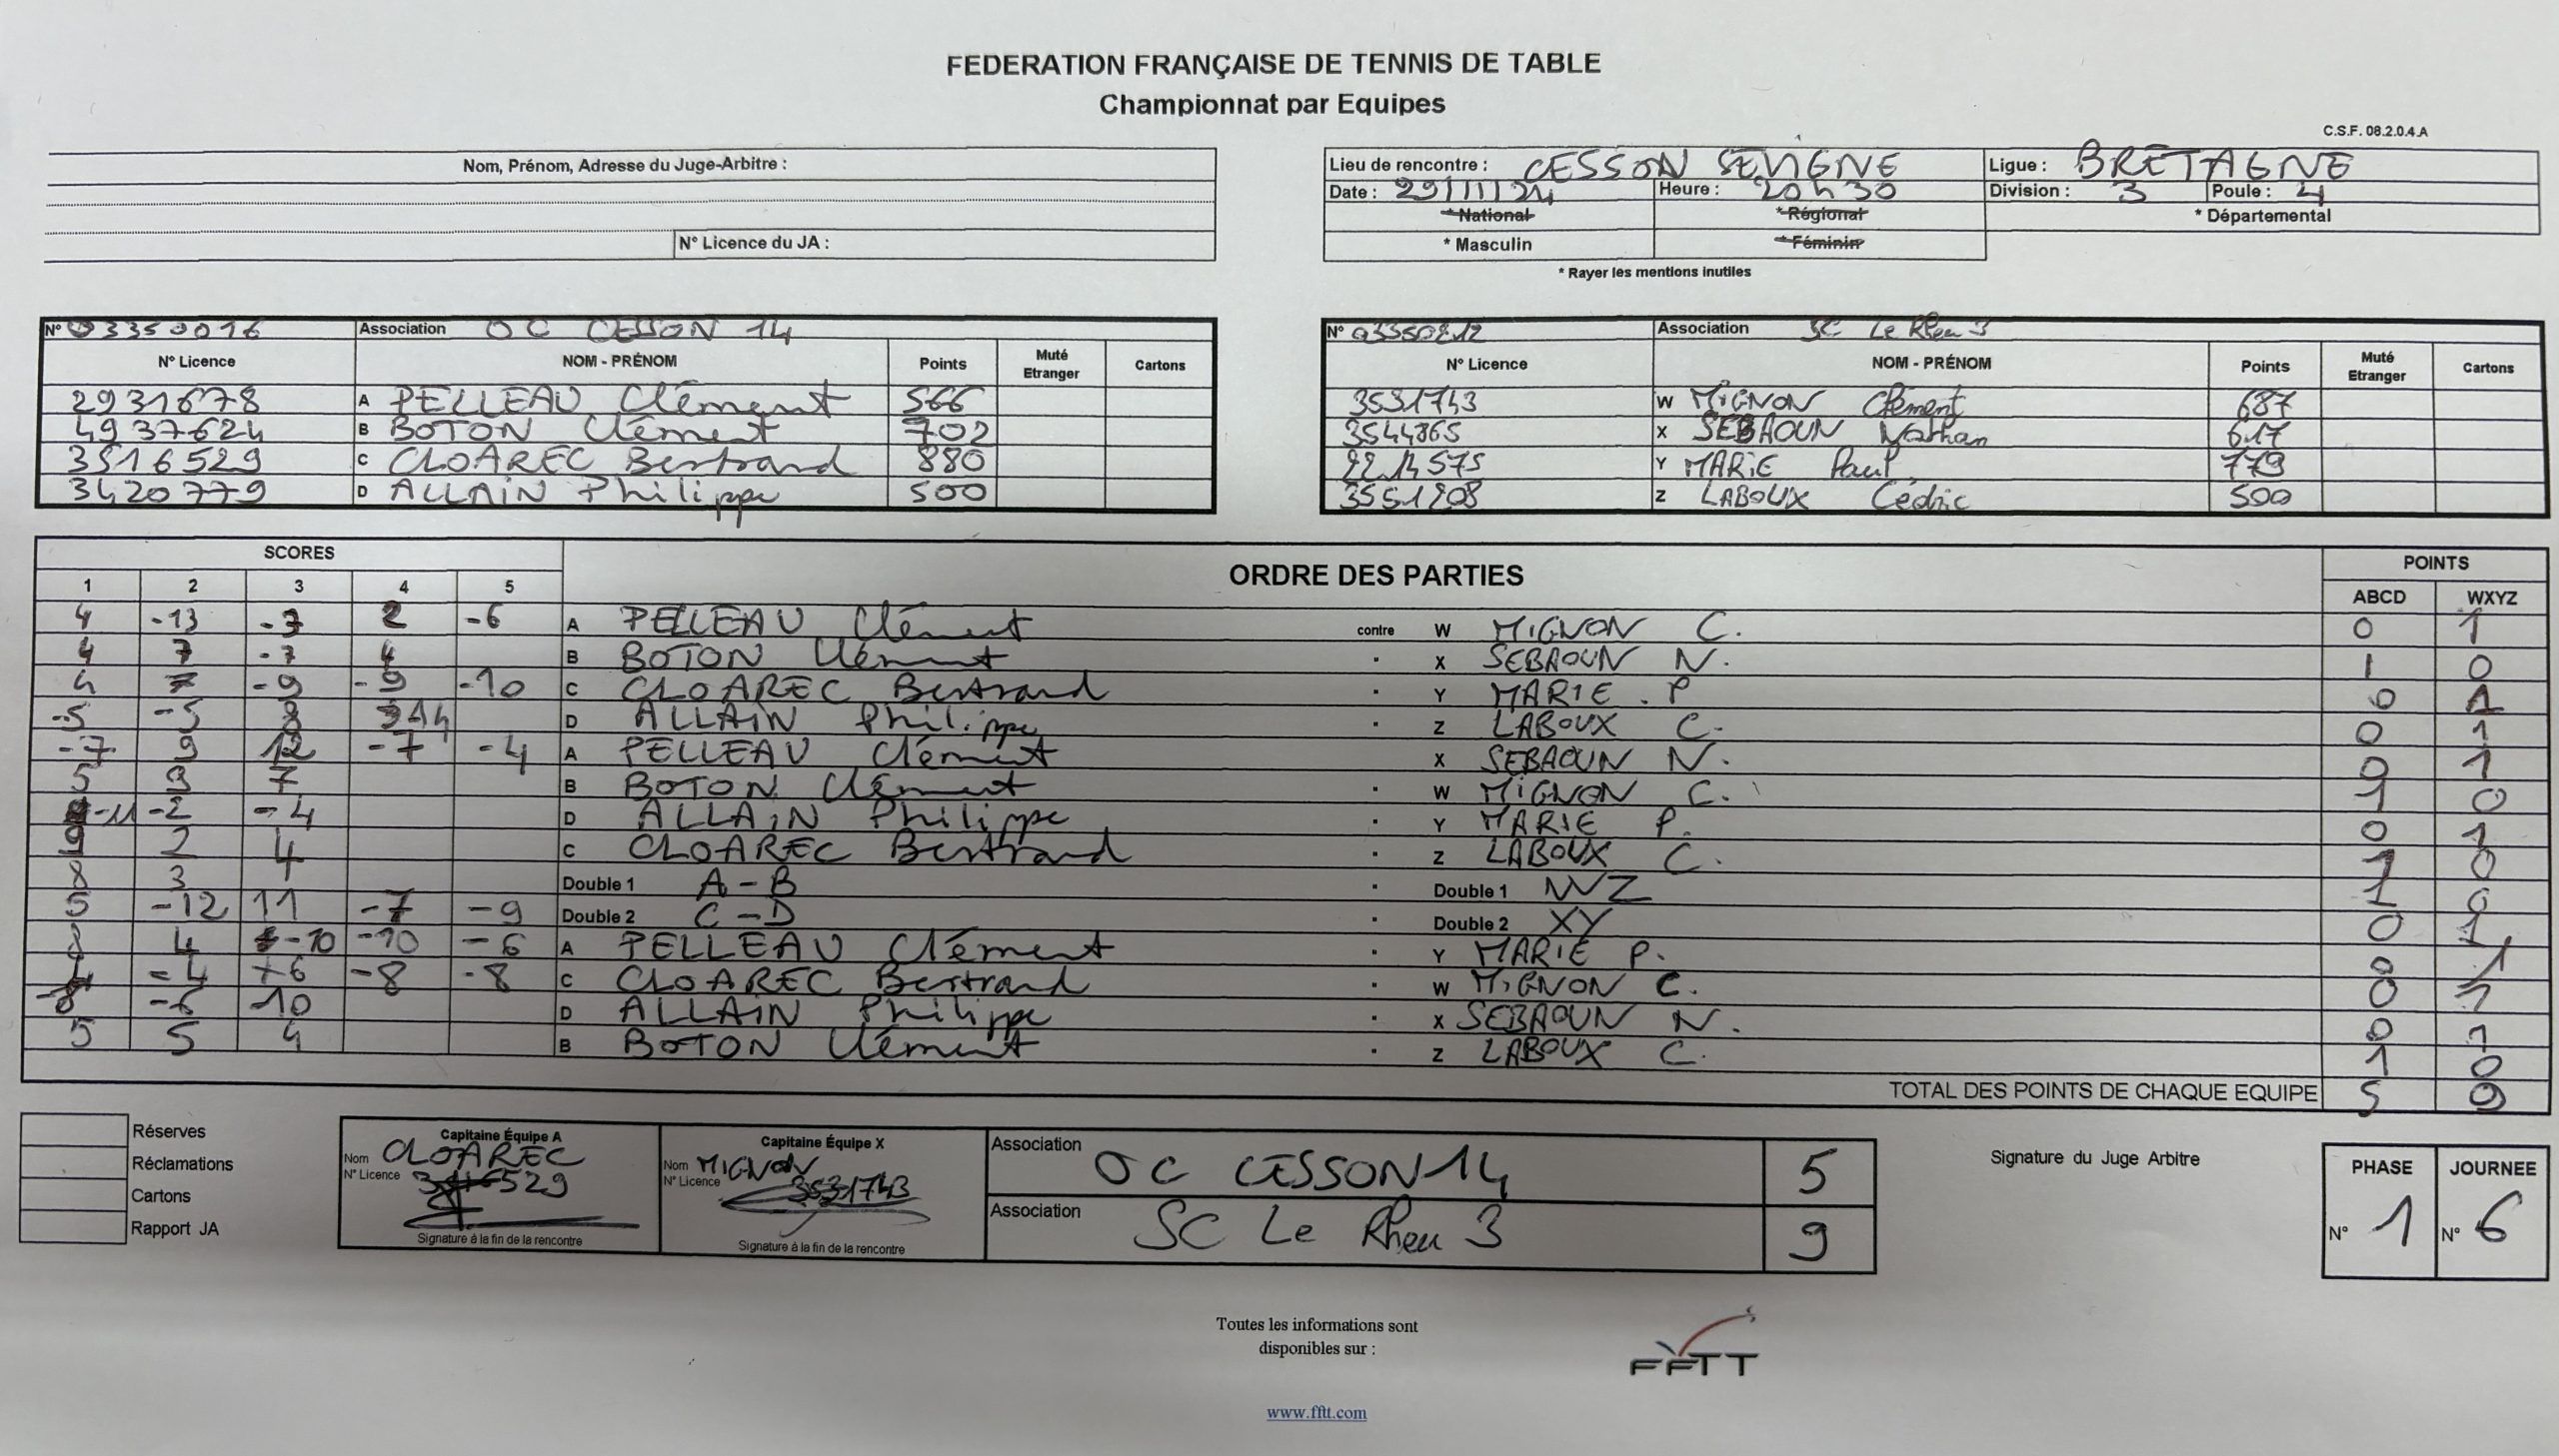 FEDERATION FRANÇAISE DE TENNIS DE TABLE
Championnat par Equipes
C.S.F. 08.2.0.4.A
Nom, Prénom, Adresse du Juge-Arbitre :
N° Licence du JA :
Lieu de rencontre : CESSON SEVIGNE Ligue : BRETAGNE
Date : 29/11/24 Heure : 20h30 Division : 3 Poule : 4
* National * Régional * Départemental
* Masculin * Féminin
* Rayer les mentions inutiles
N° 03350016 Association OC CESSON 14
N° Licence NOM - PRÉNOM Points Muté Etranger Cartons
2931678 A PELLEAU Clément 566
4937624 B BOTON Clément 702
3516529 C CLOAREC Bertrand 880
3420779 D ALLAIN Philippe 500
N° 03350212 Association SC Le Rheu 3
N° Licence NOM - PRÉNOM Points Muté Etranger Cartons
3531743 W MIGNON Clément 687
3544865 X SEBAOUN Nathan 617
2214575 Y MARIE Paul 779
3551208 Z LABOUX Cédric 500
SCORES ORDRE DES PARTIES POINTS
1 2 3 4 5 ABCD WXYZ
4 -13 -7 2 -6 A PELLEAU Clément contre W MIGNON C. 0 1
4 7 -7 4 B BOTON Clément X SEBAOUN N. 1 0
4 7 -9 -9 -10 C CLOAREC Bertrand Y MARIE . P 0 1
-5 -5 8 -14 D ALLAIN Philippe Z LABOUX C. 0 1
-7 9 12 -7 -4 A PELLEAU Clément X SEBAOUN N. 0 1
5 3 7 B BOTON Clément W MIGNON C. 1 0
-11 -2 -4 D ALLAIN Philippe Y MARIE P. 0 1
9 2 4 C CLOAREC Bertrand Z LABOUX C. 1 0
8 3 Double 1 A-B Double 1 WZ 1 0
5 -12 11 -7 -9 Double 2 C-D Double 2 XY 0 1
8 4 -10 -10 -6 A PELLEAU Clément Y MARIE P. 0 1
-4 +6 -8 -8 C CLOAREC Bertrand W MIGNON C. 0 1
-8 -6 -10 D ALLAIN Philippe X SEBAOUN N. 0 1
5 5 4 B BOTON Clément Z LABOUX C. 1 0
TOTAL DES POINTS DE CHAQUE EQUIPE 5 9
Réserves
Réclamations
Cartons
Rapport JA
Capitaine Équipe A
Nom CLOAREC
N° Licence 3516529
Signature à la fin de la rencontre
Capitaine Équipe X
Nom MIGNON
N° Licence 3531743
Signature à la fin de la rencontre
Association OC CESSON 14 5
Association SC Le Rheu 3 9
Signature du Juge Arbitre
PHASE JOURNEE
N° 1 N° 6
Toutes les informations sont
disponibles sur :
FFTT
www.fftt.com